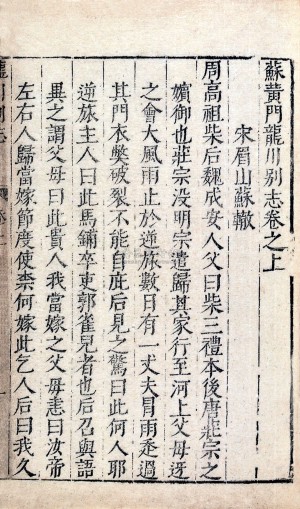 蘇黃門龍川別志卷之上
宋眉山蘇轍
周高祖柴后魏成安人父曰柴三禮本後唐莊宗之
嬪御也莊宗没明宗遣歸其家行至河上父母迓
之會大風雨止於逆旅數日有一丈夫冒雨走過
其門衣獘破裂不能自庇后見之驚曰此何人耶
逆旅主人曰此馬鋪卒吏郭雀兒者也后召與語
異之謂父母曰此貴人我當嫁之父母恚曰汝帝
左右人歸當嫁節度使柰何嫁此乞人后曰我久